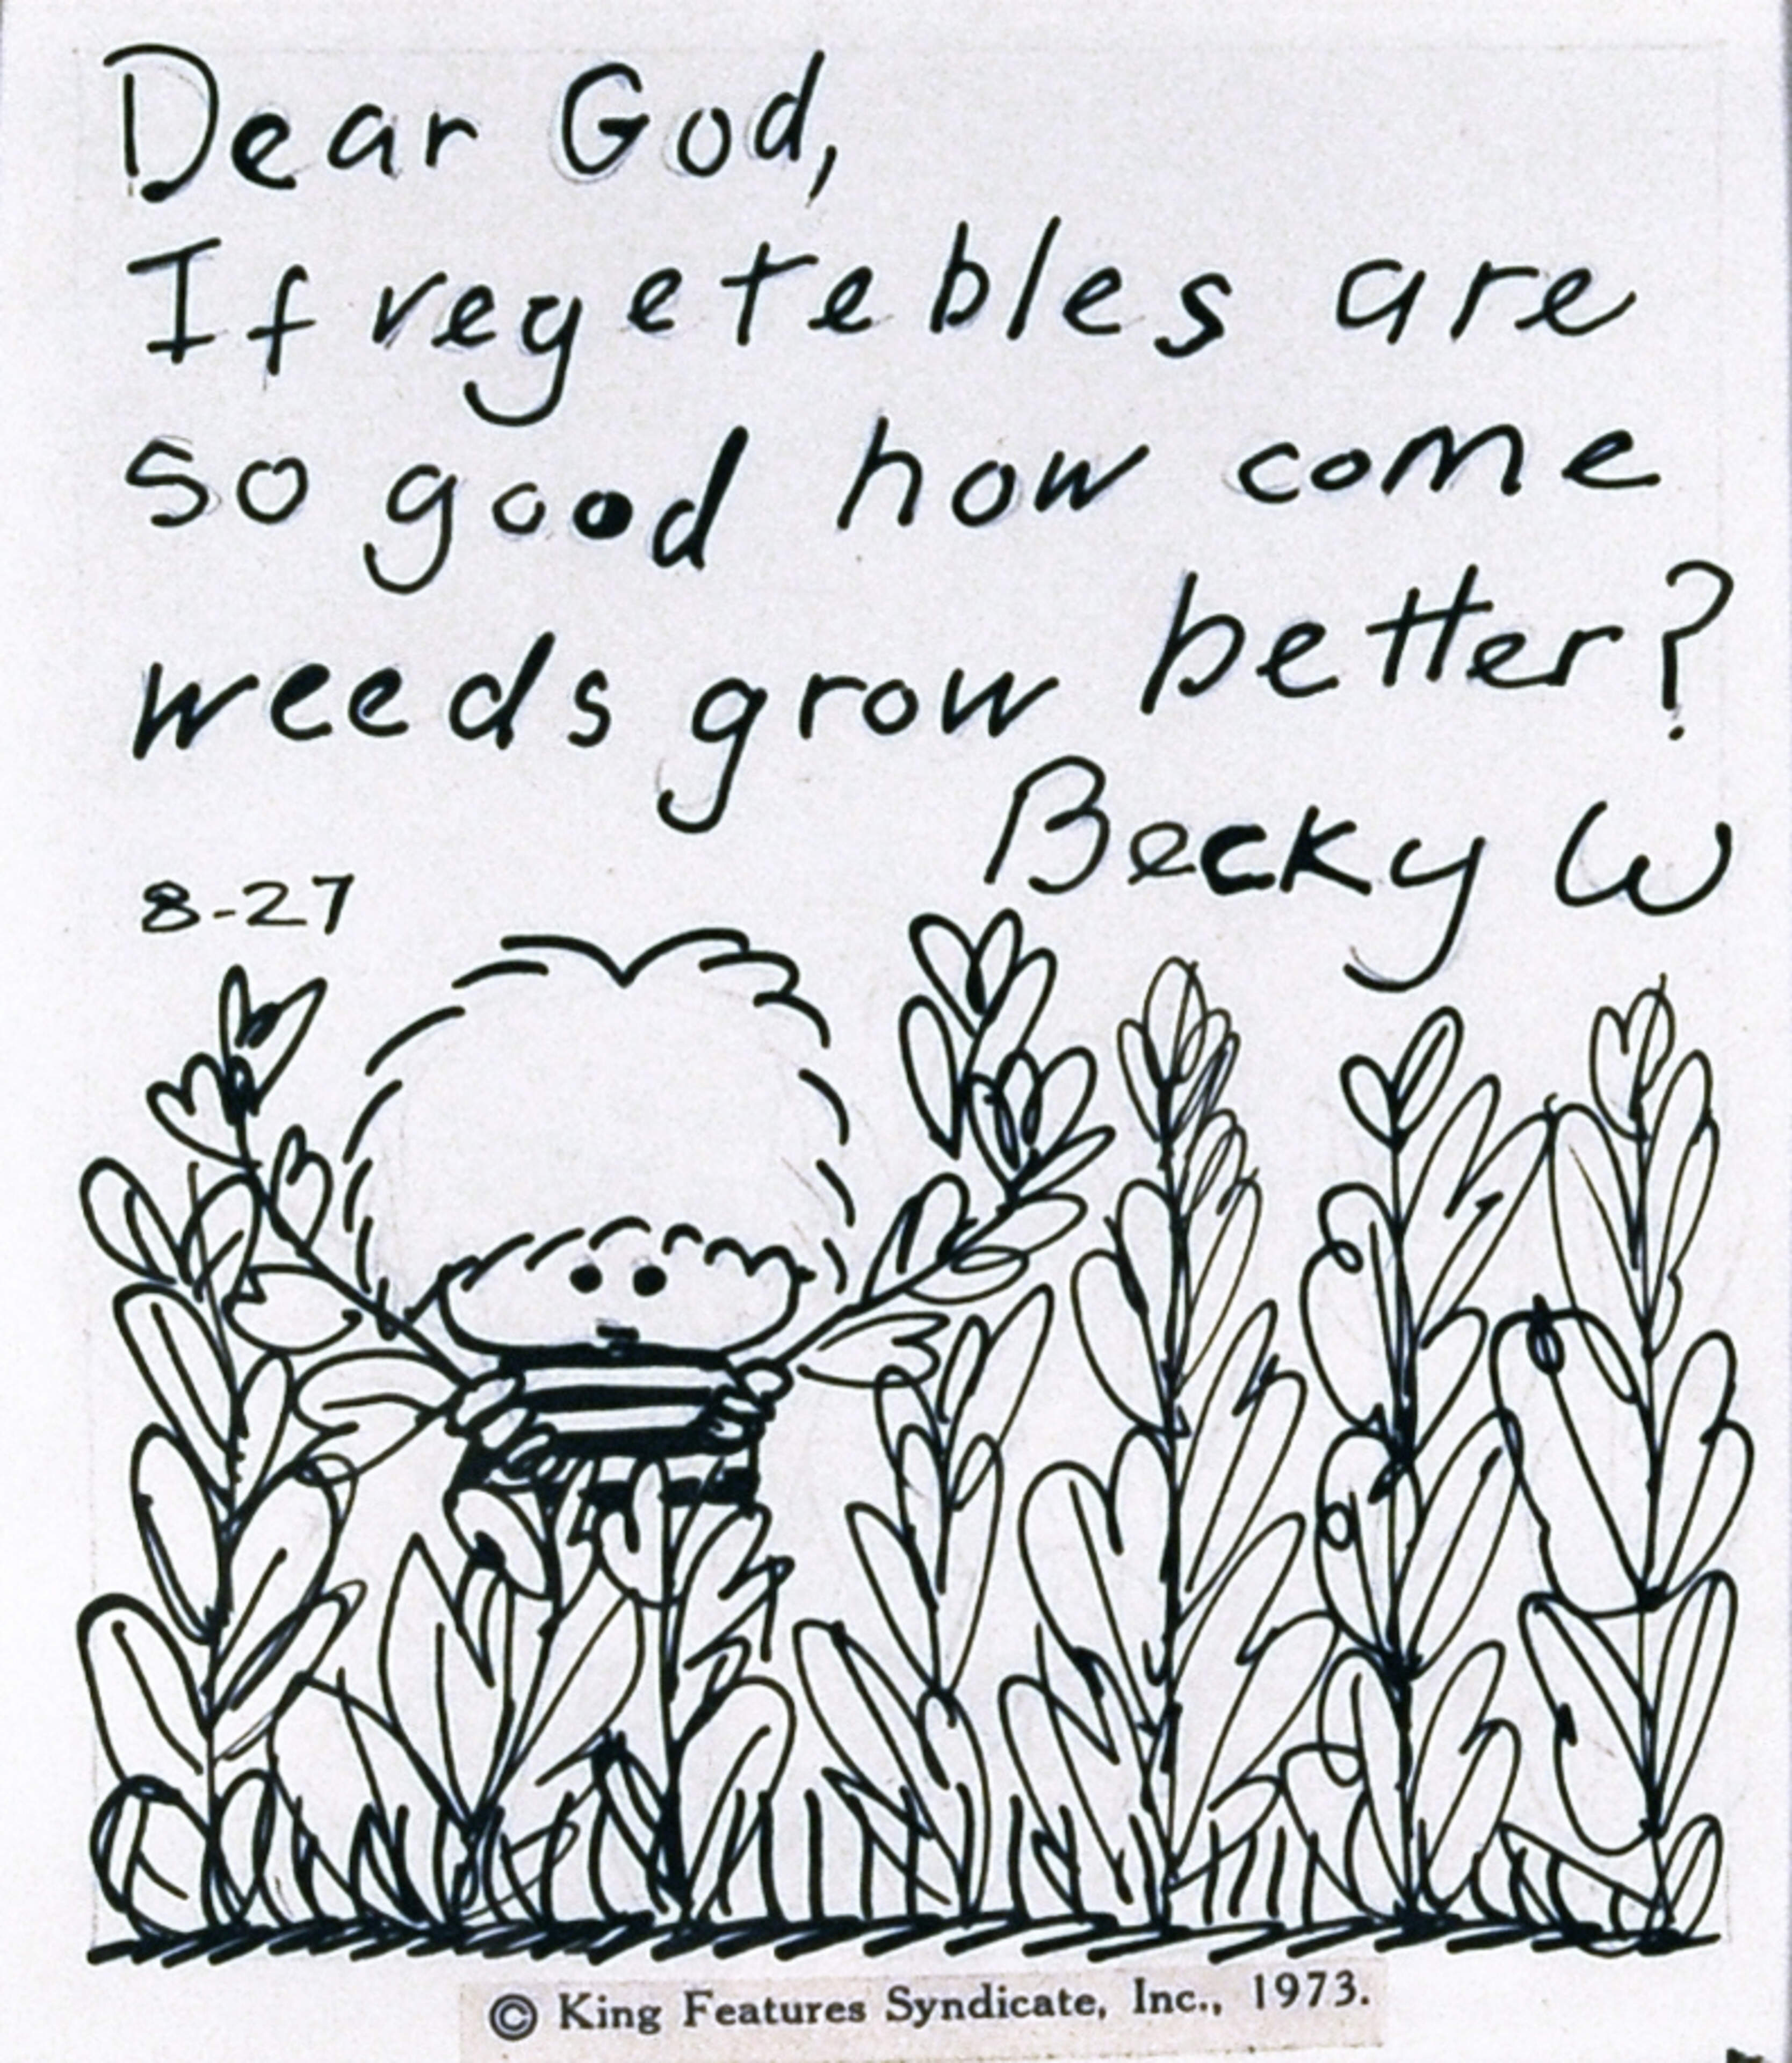 Dear God,
If vegetebles are
so good how come
weeds grow better?
Becky W
8-27
© King Features Syndicate, Inc., 1973.